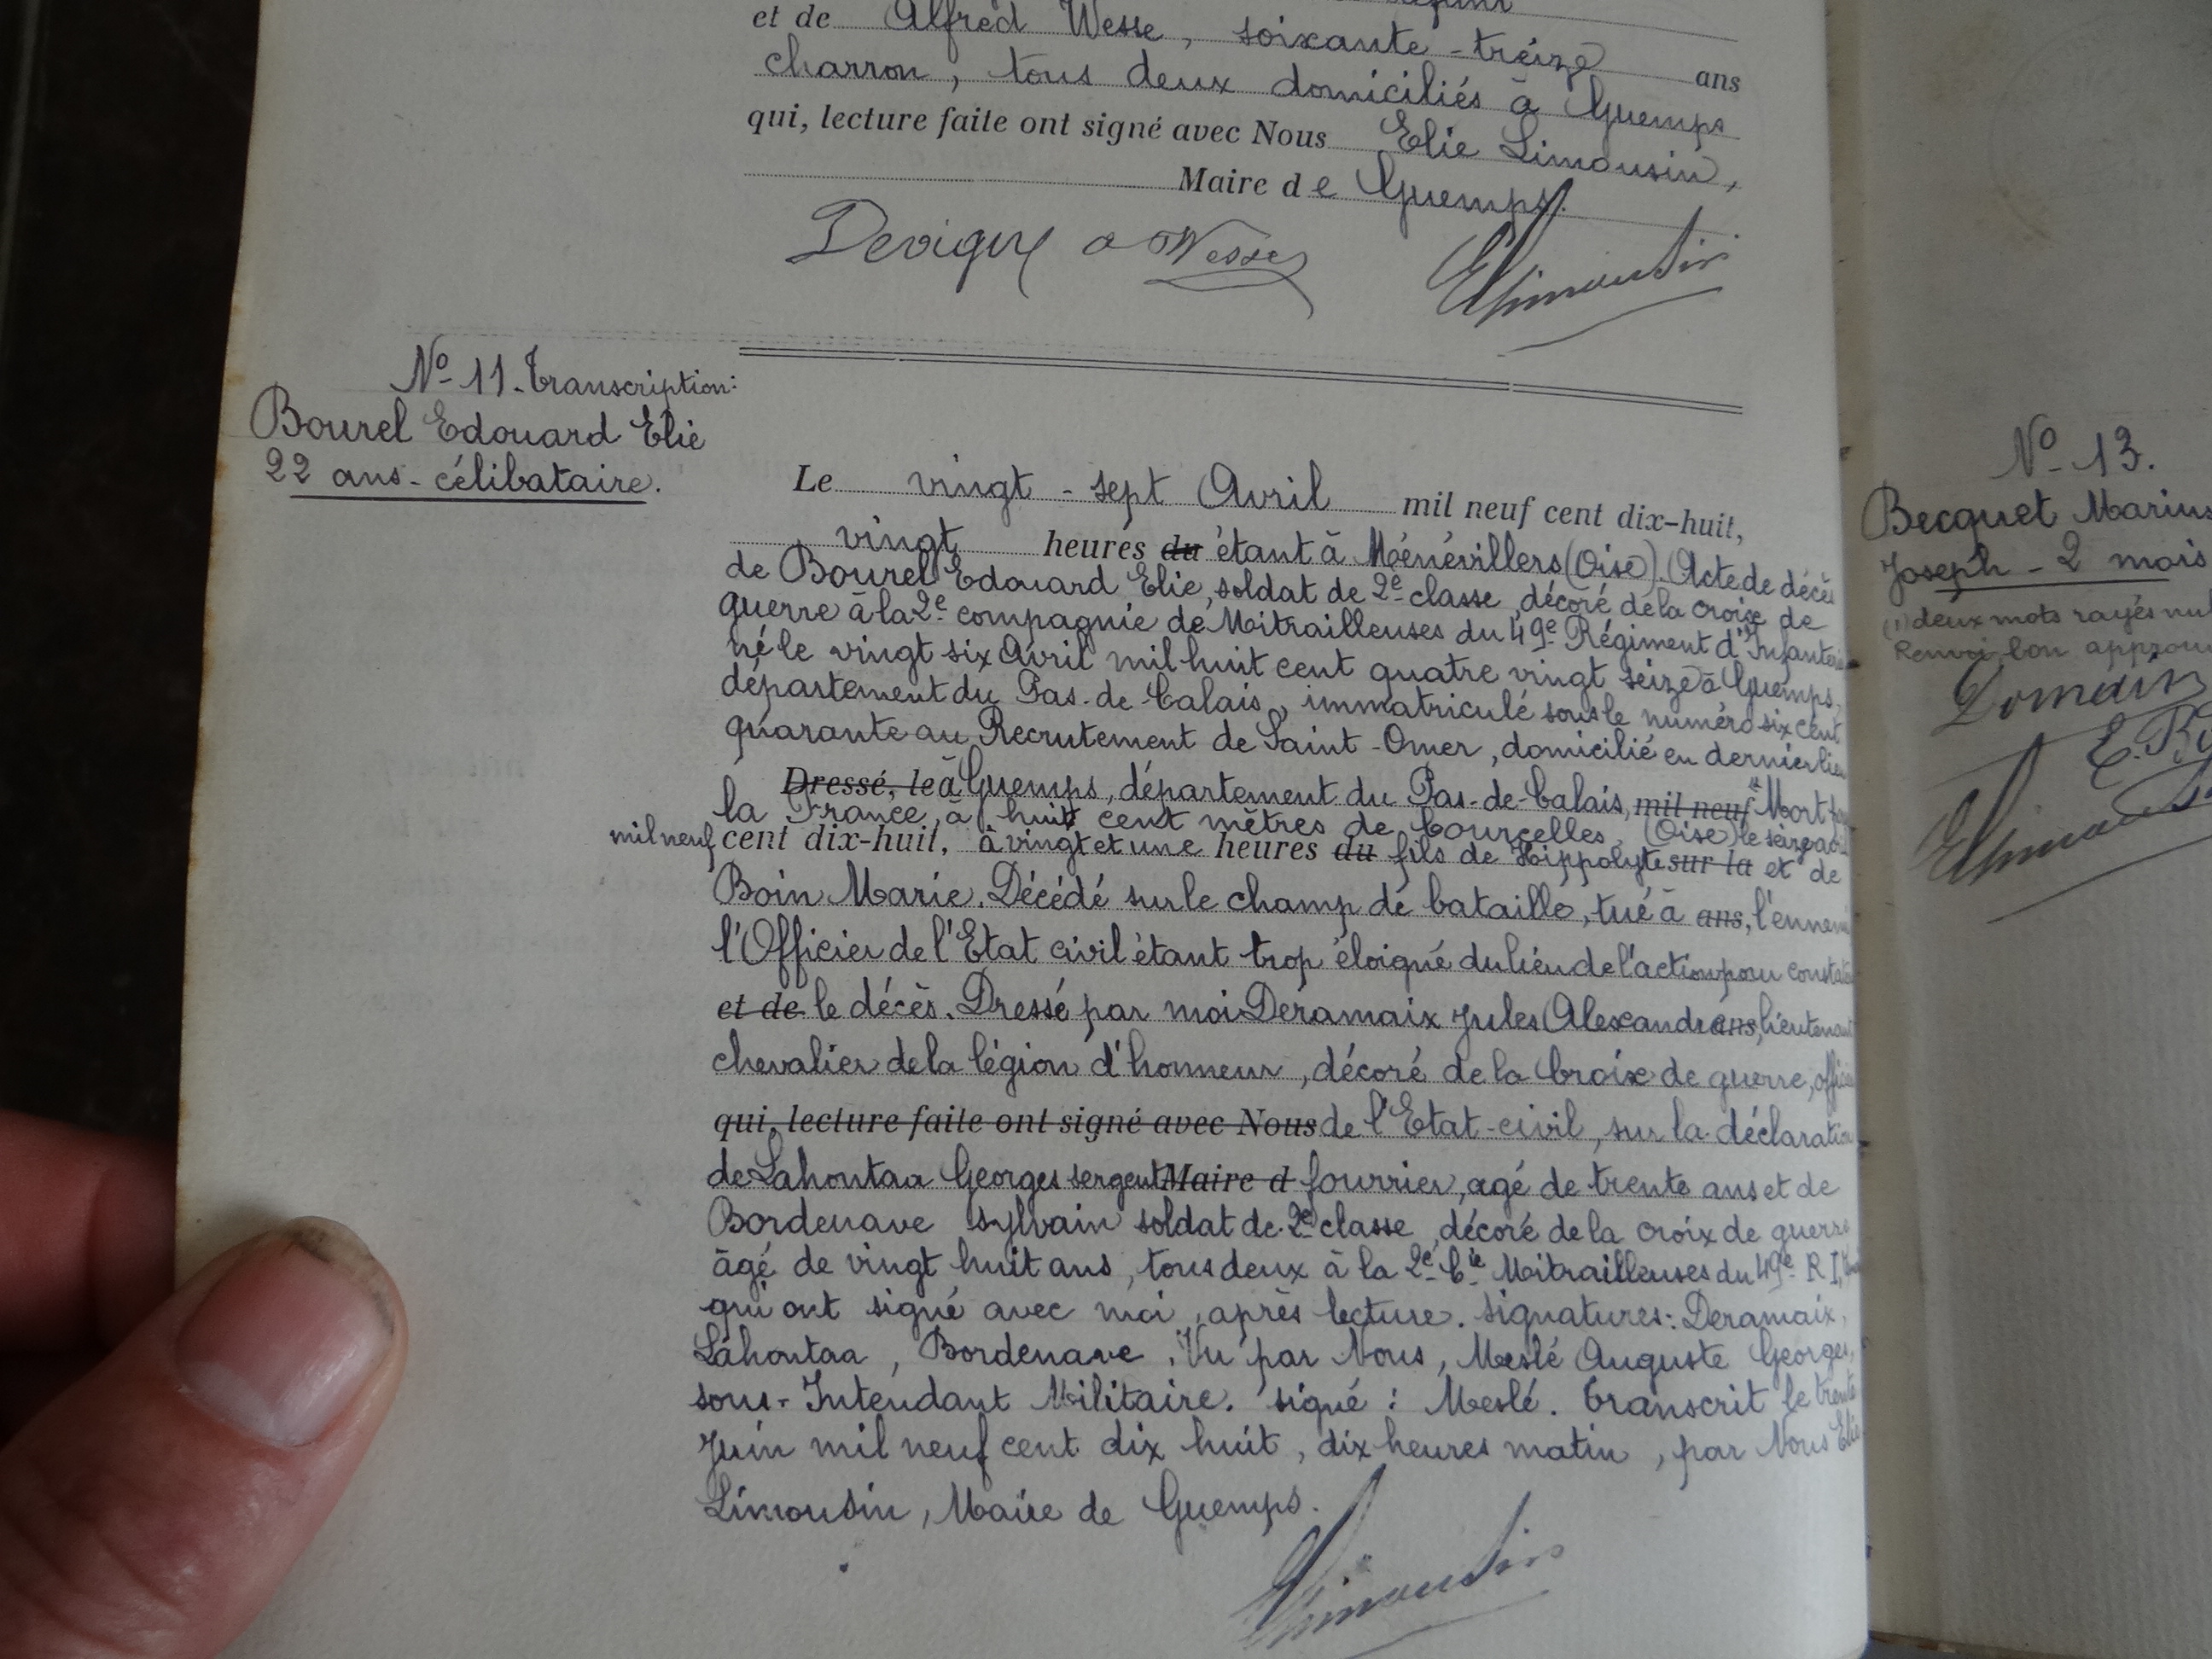 et de Alfred Wesse, soixante-treize ans
charron, tous deux domiciliés à Guemps
qui, lecture faite ont signé avec Nous Elie Limousin,
Maire de Guemps.
Devigne a Wesse ELimousin
N° 11. Transcription:
Bourel Edouard Elie
22 ans - célibataire.
Le vingt-sept Avril mil neuf cent dix-huit,
vingt heures du étant à Ménévillers (Oise). Acte de décès
de Bourel Edouard Elie, soldat de 2e classe, décoré de la croix de
guerre à la 2e compagnie de Mitrailleuses du 49e Régiment d'Infanterie
né le vingt six Avril mil huit cent quatre vingt seize à Guemps,
département du Pas-de-Calais, immatriculé sous le numéro six cent
quarante au Recrutement de Saint-Omer, domicilié en dernier lieu
Dressé, le à Guemps, département du Pas-de-Calais, mil neuf Mort
la France, à huit cent mètres de Courcelles, (Oise) le seize avril
mil neuf cent dix-huit, à vingt et une heures du fils de Hippolyte sur la et de
Boin Marie. Décédé sur le champ de bataille, tué à ans, l'ennemi
l'Officier de l'Etat civil étant trop éloigné du lieu de l'action pour constater
et de le décès. Dressé par moi Deramaix Jules Alexandre ans, lieutenant
chevalier de la légion d'honneur, décoré de la Croix de guerre, officier
qui, lecture faite ont signé avec Nous de l'Etat-civil, sur la déclaration
de Lahontaa Georges sergent Maire d fourrier, agé de trente ans et de
Bordenave Sylvain soldat de 2e classe, décoré de la croix de guerre
âgé de vingt huit ans, tous deux à la 2e Cie Mitrailleuses du 49e R.I,
qui ont signé avec moi, après lecture. Signatures: Deramaix,
Lahontaa, Bordenave. Vu par Nous, Meslé Auguste Georges,
sous-Intendant Militaire. signé: Meslé. Transcrit le trente
Juin mil neuf cent dix huit, dix heures matin, par Nous Elie
Limousin, Maire de Guemps.
ELimousin
N° 13.
Becquet Marius
Joseph - 2 mois
(1) deux mots rayés nul
Renvoi bon approu